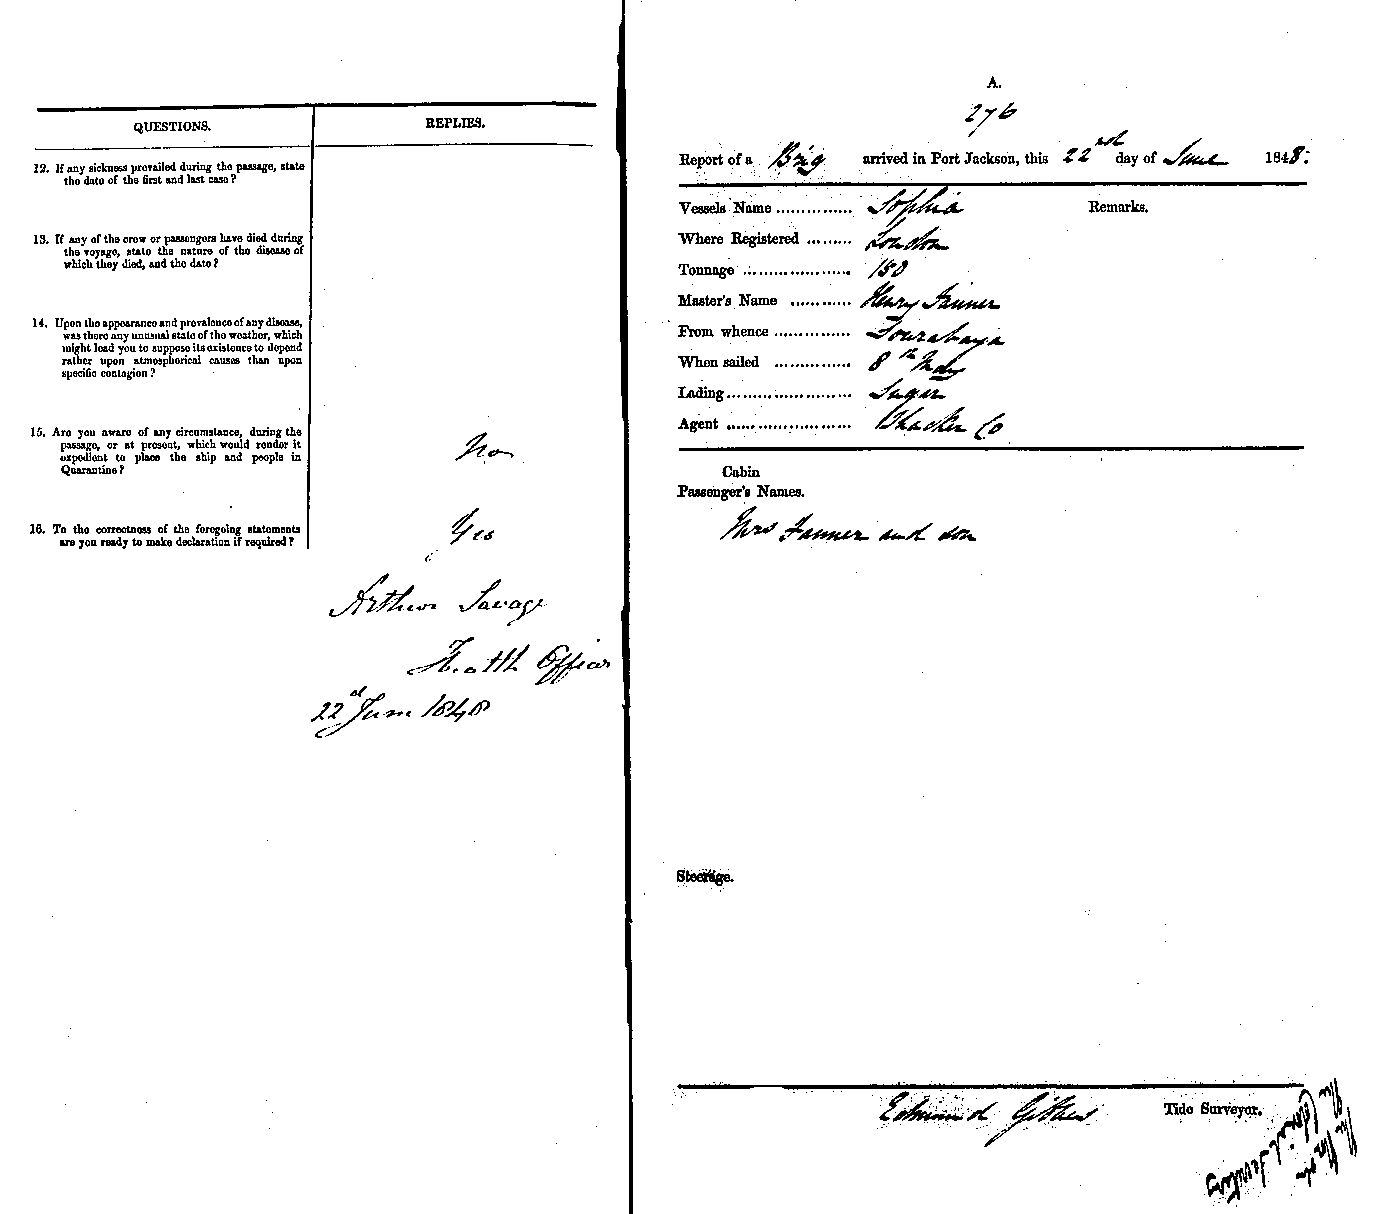 QUESTIONS.
REPLIES.
12. If any sickness prevailed during the passage, state
the date of the first and last case?
13. If any of the crew or passengers have died during
the voyage, state the nature of the disease of
which they died, and the date?
14. Upon the appearance and prevalence of any disease,
was there any unusual state of the weather, which
might lead you to suppose its existence to depend
rather upon atmospherical causes than upon
specific contagion?
15. Are you aware of any circumstance, during the
passage, or at present, which would render it
expedient to place the ship and people in
Quarantine?
No
16. To the correctness of the foregoing statements
are you ready to make declaration if required?
Yes
Arthur Savage
Health Officer
22d June 1848
A.
276
Report of a Brig arrived in Port Jackson, this 22nd day of June 1848.
Vessels Name ............... Sophia
Remarks.
Where Registered ......... London
Tonnage ..................... 150
Master's Name ............ Henry Fanner
From whence ............... Sourabaya
When sailed ............... 8th May
Lading........................ Sugar
Agent ........................ Thacker Co
Cabin
Passenger's Names.
Mrs Fanner and son
Steerage.
Edmund Gibbes Tide Surveyor.
The Colonial Secretary